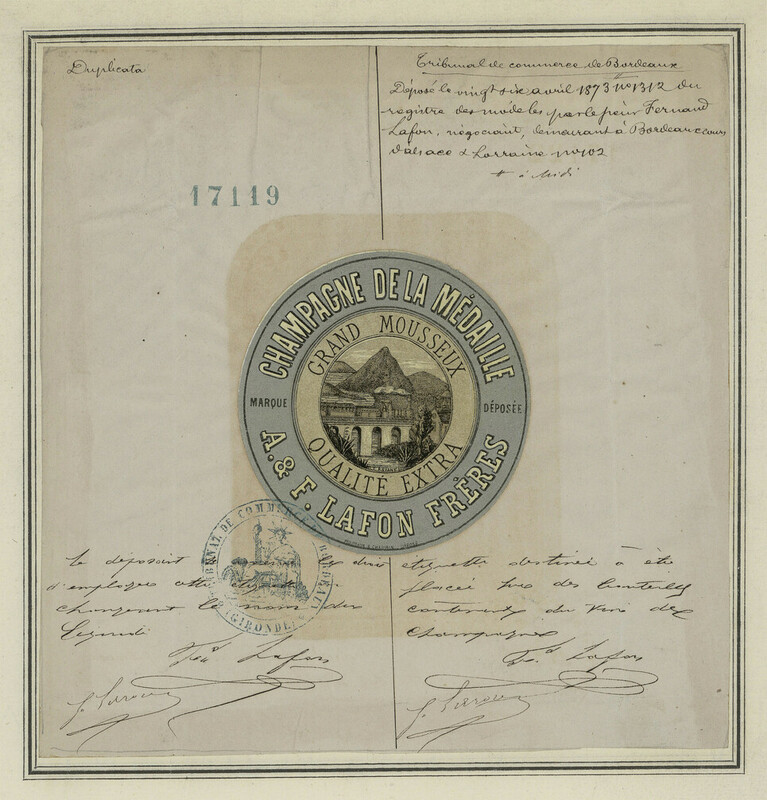 Duplicata
Tribunal de commerce de Bordeaux
Déposé le vingt six avril 1873 no 1312 du
registre des modèles par le sieur Fernand
Lafon, négociant, demeurant à Bordeaux cours
d'alsace & Lorraine no 102
à Midi
17119
CHAMPAGNE DE LA MÉDAILLE
GRAND MOUSSEUX
MARQUE DÉPOSÉE
QUALITÉ EXTRA
A. & F. LAFON FRÈRES
TRIBUNAL DE COMMERCE BORDEAUX
(GIRONDE)
le déposant se droit
d'employer cette étiquette en
changement le nom du
Légende
Fd Lafon
étiquette destinée à être
placée sur des bouteilles
contenant du vin de
Champagne
Fd Lafon